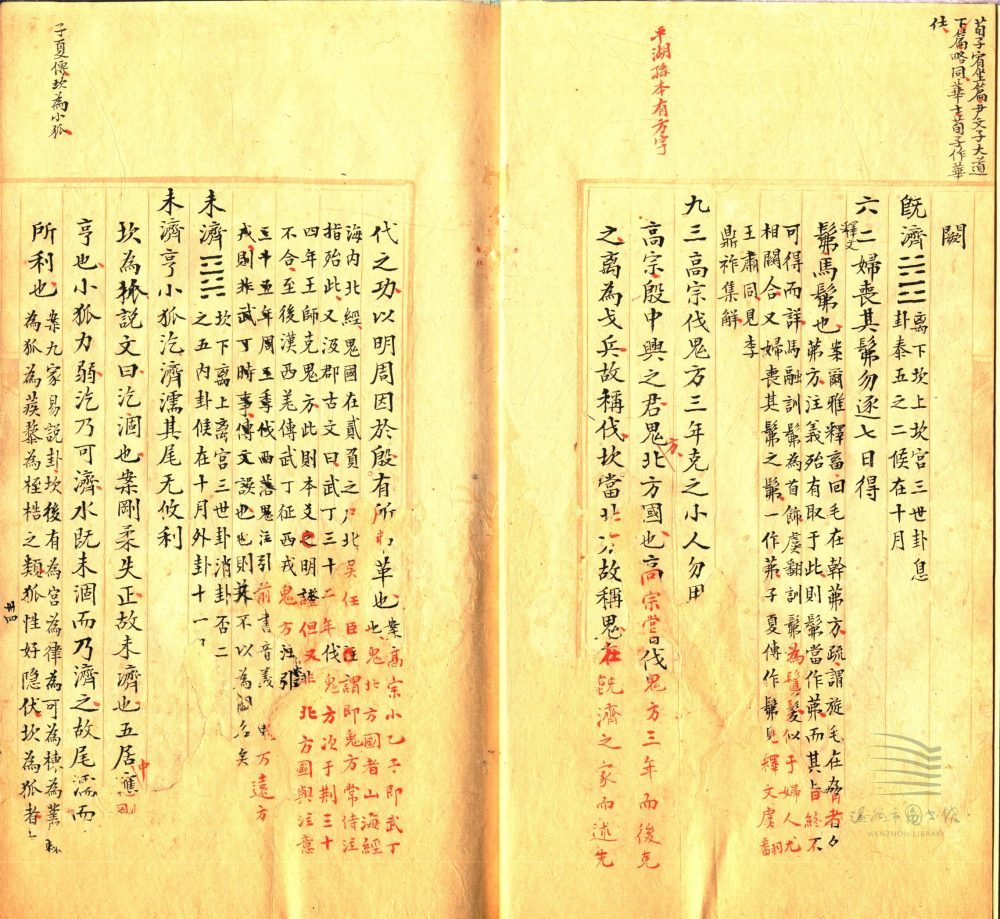 荀子宥坐篇尹文子大道
下篇略同華士荀子作華
仕
平湖孫本有方字
闕
既濟 離下坎上坎宮三世卦息
卦泰五之二候在十月
六二婦喪其髴勿逐七日得
釋文
髴馬髴也案爾雅釋畜回毛在幹茀方疏謂旋毛在脅者
可得而詳馬融訓髴為首飾虞翻訓髴為鬒髮似于婦人尤
相關合又婦喪其髴之髴一作茀子夏傳作髴見釋文虞翻
王肅同見李
鼎祚集解
九三高宗伐鬼方三年克之小人勿用
高宗殷中興之君鬼北方國也高宗嘗伐鬼方三年而後克
方
之離為戈兵故稱伐坎當北方故稱鬼在既濟之家而述先
子夏傳坎為小狐
代之功以明周因於殷有所革也案高宗小乙子即武丁
也鬼北方國者山海經
海內北經鬼國在貳負之尸北吳任臣注謂即鬼方常侍注
指殆此又汲郡古文曰武丁三十二年伐鬼方次于荆三十
四年王師克鬼方此則本爻之明證但又非北方國與注意
不合至後漢西羌傳武丁征西戎鬼方注
三十五年周王季伐西落鬼注引前書音義 方遠方
戎則非武丁時事傳文誤也也則 不以為國名矣
未濟 坎下離上離宮三世卦消卦否二
之五內卦候在十月外卦十一
未濟亨小狐汔濟濡其尾无攸利
坎為狐說文曰汔涸也案剛柔失正故未濟也五居
中
亨也小狐力弱汔乃可濟水既未涸而乃濟之故尾濡而
所利也案九家易說卦坎後有為宮為律為可為棟為叢
為狐為蒺藜為桎梏之類狐性好隱伏坎為狐者
卅四
溫州市圖書館
WENZHOU LIBRARY